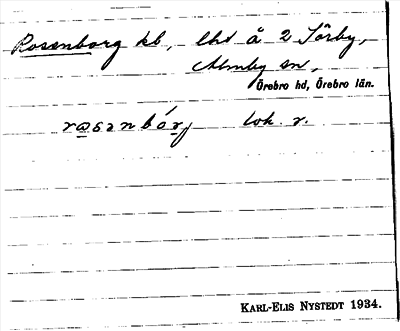 Rosenborg kb, lht å 2 Sörby,
Almby sn,
Örebro hd, Örebro län.
rosenbórj lok. r.
KARL-ELIS NYSTEDT 1934.